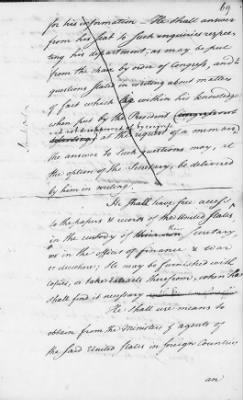 69
for his information. He shall answer
from his seat to such enquiries respec
ting his department, as may be put
from the chair by order of Congress, and to
questions stated in writing about matters
of fact which lie within his knowledge
when put by the President
and not disapproved by Congress
at the request of a member
the answer to such questions may, at
the option of the Secretary, be delivered
by him in writing.
He shall have free access
to the papers & records of the United States
in the custody of their Secretary
or in the offices of finance & war
or elsewhere; He may be furnished with
copies, or take extracts therefrom, when he
shall find it necessary
He shall use means to
obtain from the Ministers & agents of
the said United States in foreign Countries
an